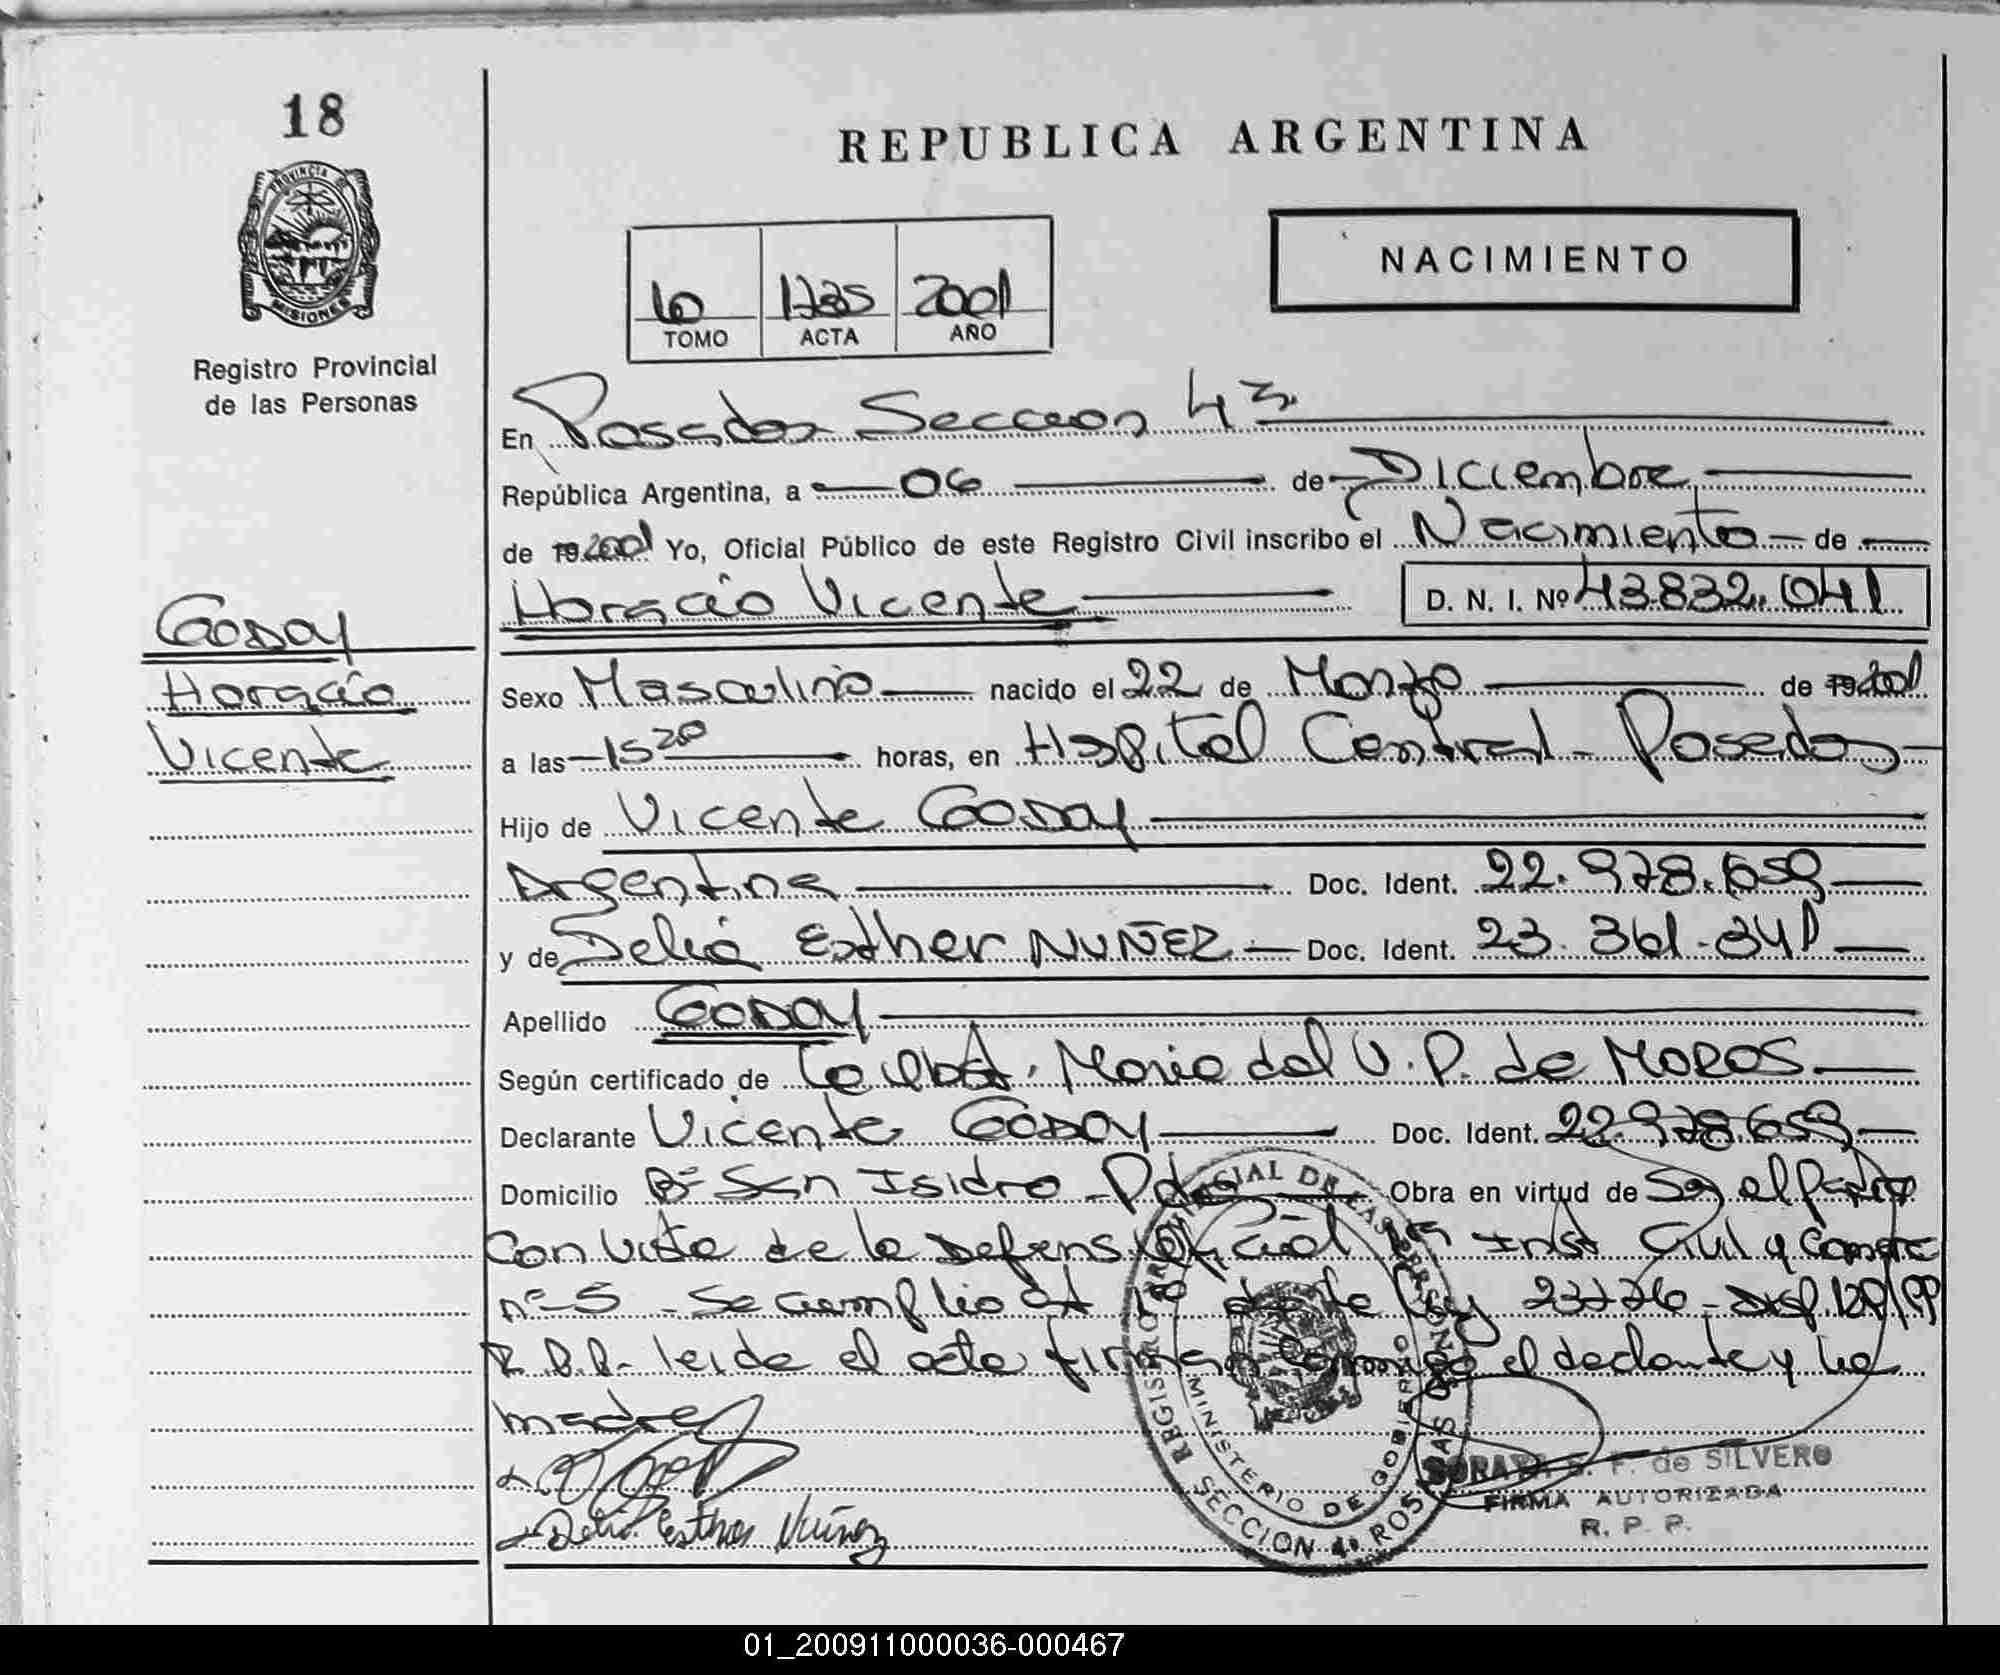 18
REPUBLICA ARGENTINA
PROVINCIA DE MISIONES
Registro Provincial
de las Personas
NACIMIENTO
2001
TOMO ACTA AÑO
En Posadas Seccion 4ª
República Argentina, a 06 de Diciembre
de 19 2001 Yo, Oficial Público de este Registro Civil inscribo el Nacimiento de
Horacio Vicente D. N. I. Nº 43.832.041
GODOY
Horacio
Vicente
Sexo Masculino nacido el 22 de Marzo de 19 2001
a las 15 20 horas, en Hospital Central - Posadas
Hijo de Vicente GODOY
Argentina Doc. Ident. 22.978.659
y de Delia Esther NUÑEZ Doc. Ident. 23.361.341
Apellido GODOY
Según certificado de Maria del V. P. de MOROS
Declarante Vicente GODOY Doc. Ident. 22.978.659
Domicilio Bº San Isidro - Pdas Obra en virtud de Ser el Padre
Con Vista de la Defens Oficial Inst Civil y Comerc
nº 5 - Se cumplio Art 1º de la Ley 23776 - Disp.
R.P.P. leida el acta firman conmigo el declante y la
madre
Delia Esther Nuñez
REGISTRO PROVINCIAL DE LAS PERSONAS
MINISTERIO DE GOBIERNO
SECCION 4ª
SORAYA S. F. de SILVERO
FIRMA AUTORIZADA
R. P. P.
01_200911000036-000467